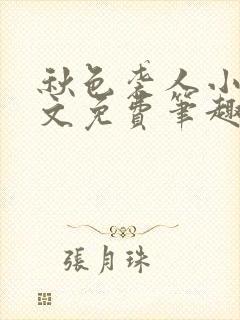 秋色袭人小
文免費筆趣
張月珠